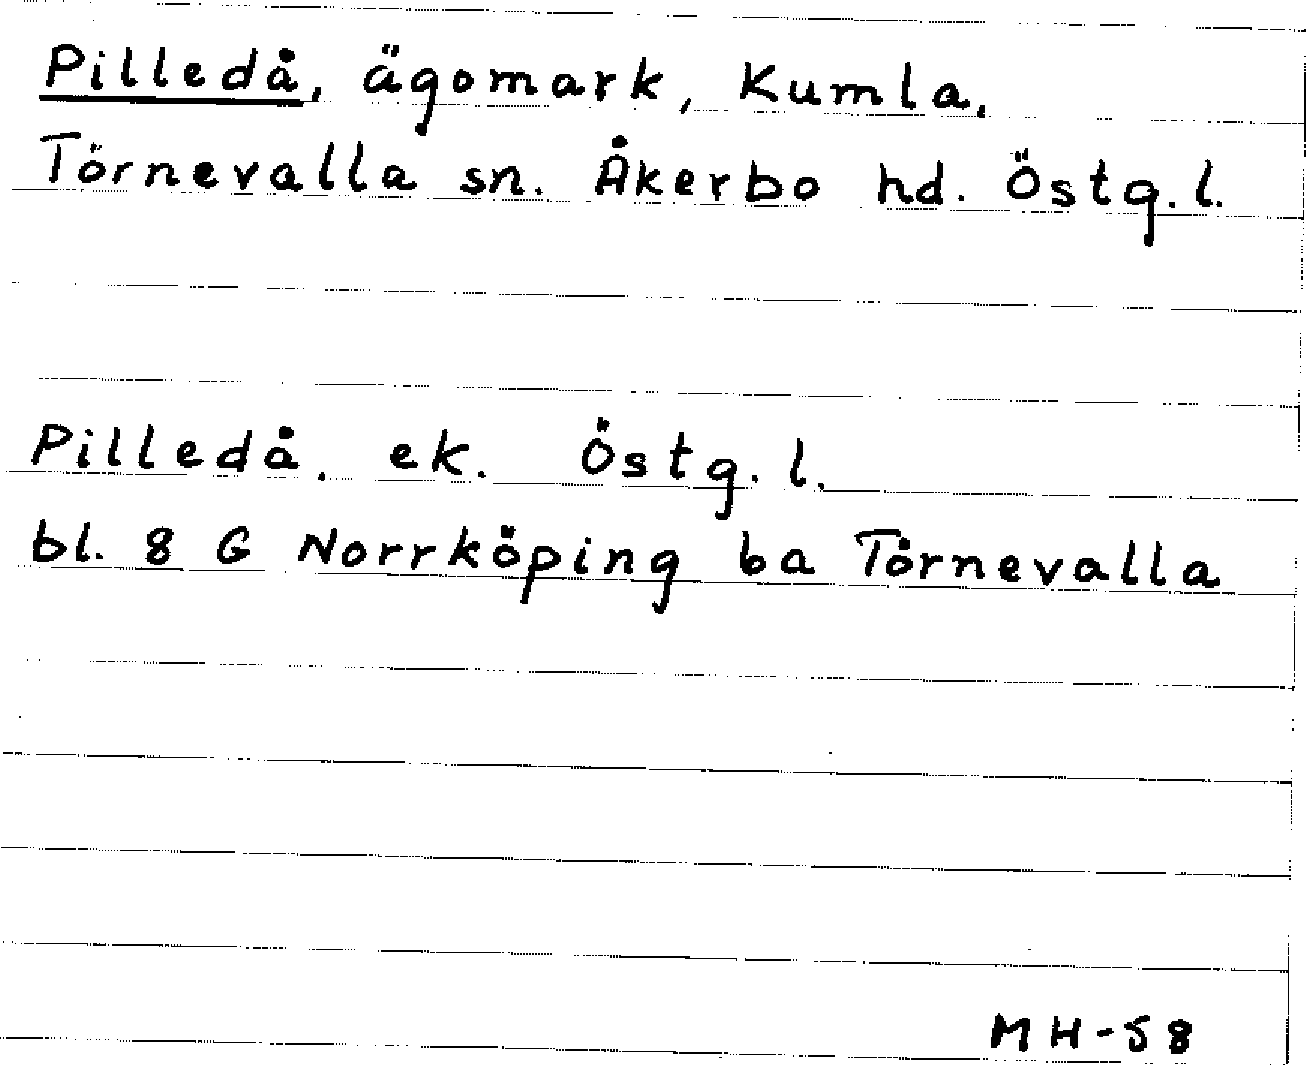 Pilledå, ägomark, Kumla,
Törnevalla sn. Åkerbo hd. Östg. l.
Pilledå. ek. Östg. l.
bl. 8 G Norrköping ba Törnevalla
MH-58